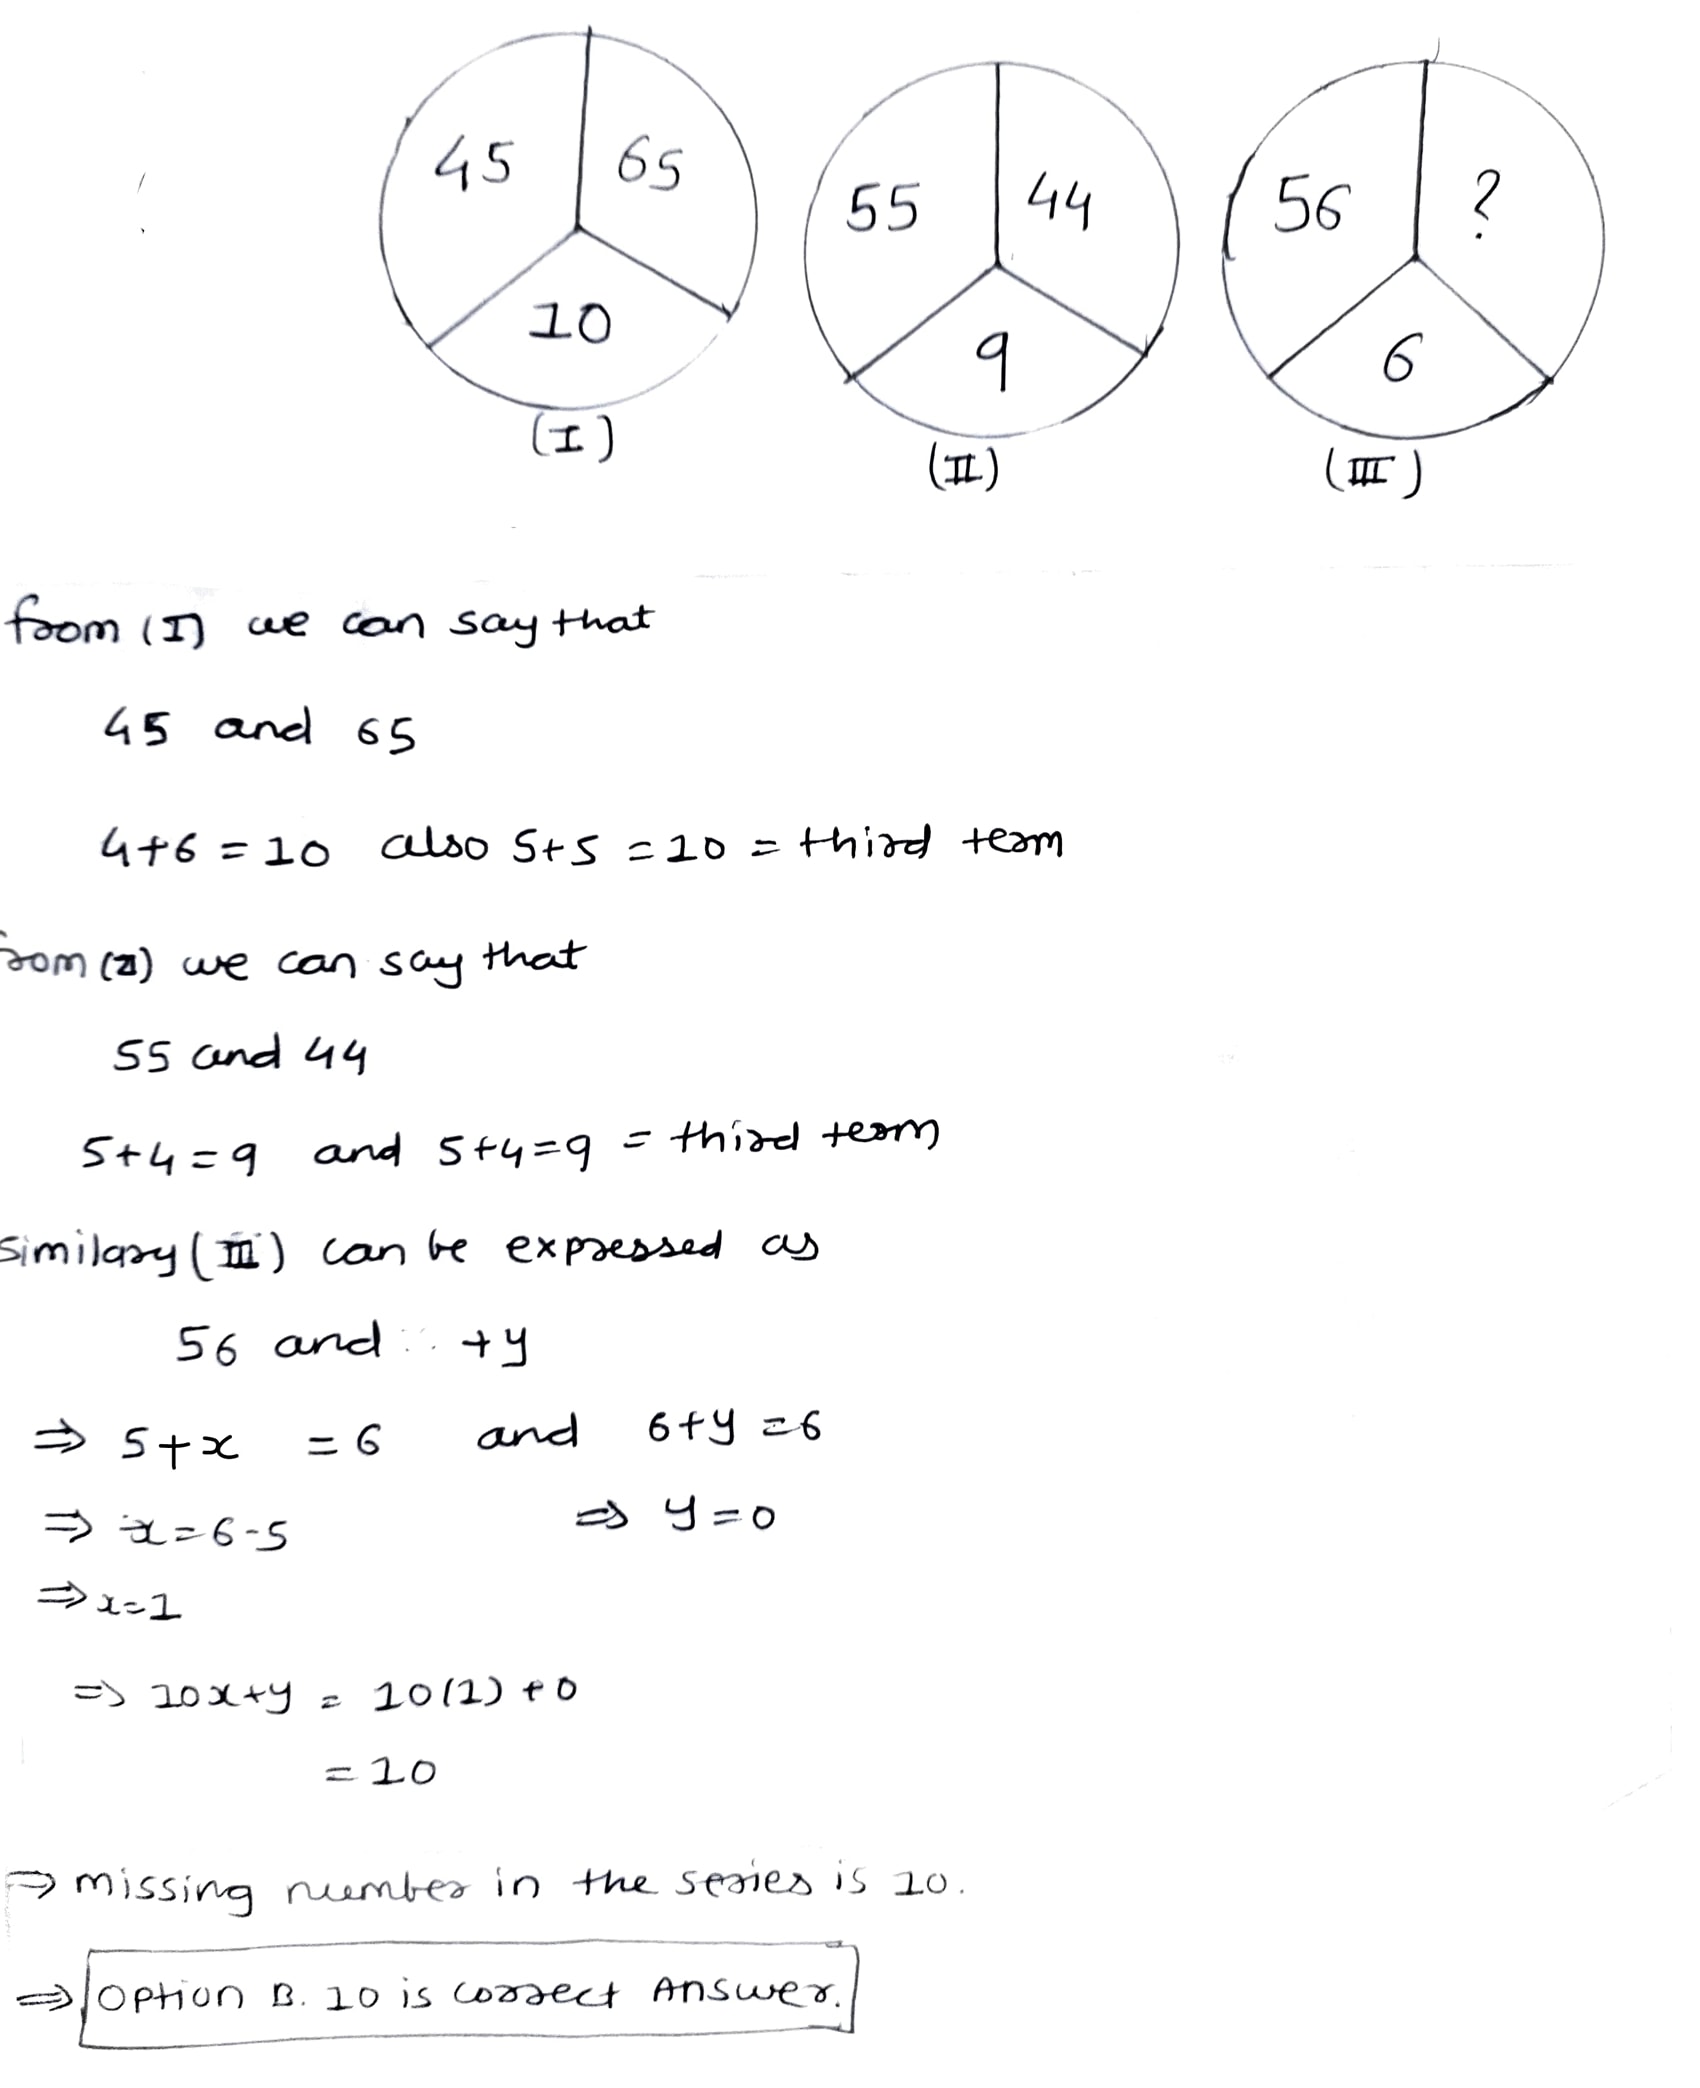 45 65
10
(I)
55 44
9
(II)
56 ?
6
(III)
from (I) we can say that
45 and 65
4+6 = 10 also 5+5 = 10 = third term
from (II) we can say that
55 and 44
5+4 = 9 and 5+4=9 = third term
similary (III) can be expressed as
56 and +y
⇒ 5+x = 6 and 6+y = 6
⇒ x = 6-5 ⇒ y = 0
⇒ x = 1
⇒ 10x+y = 10(1) + 0
= 10
⇒ missing number in the series is 10.
⇒ Option B. 10 is correct Answer.